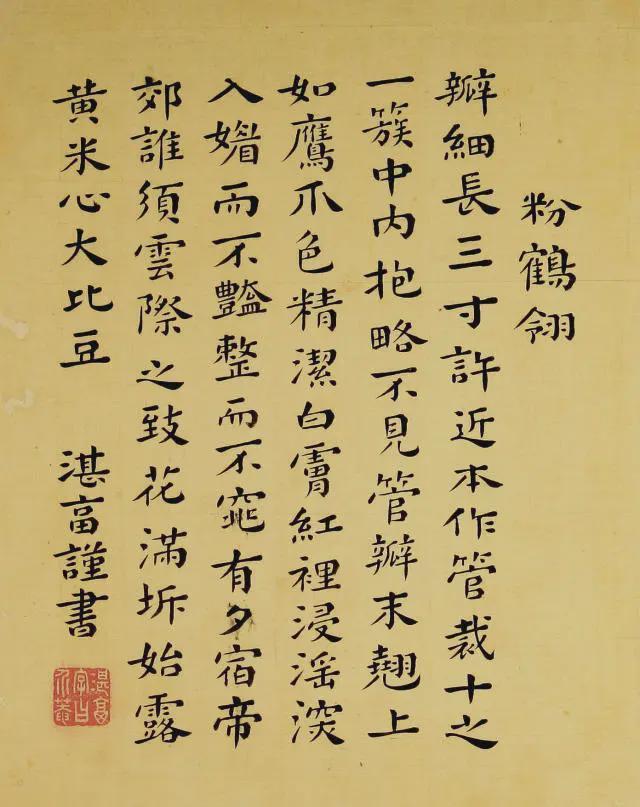 粉鶴翎
瓣細長三寸許近本作管裁十之
一簇中内抱略不見管瓣末翹上
如鷹爪色精潔白紅裡浸滛湥
入媚而不豔整而不窕有夕宿帝
郊誰須雲際之致花滿坼始露
黄米心大比豆 湛富謹書
湛富
字曰
介菴